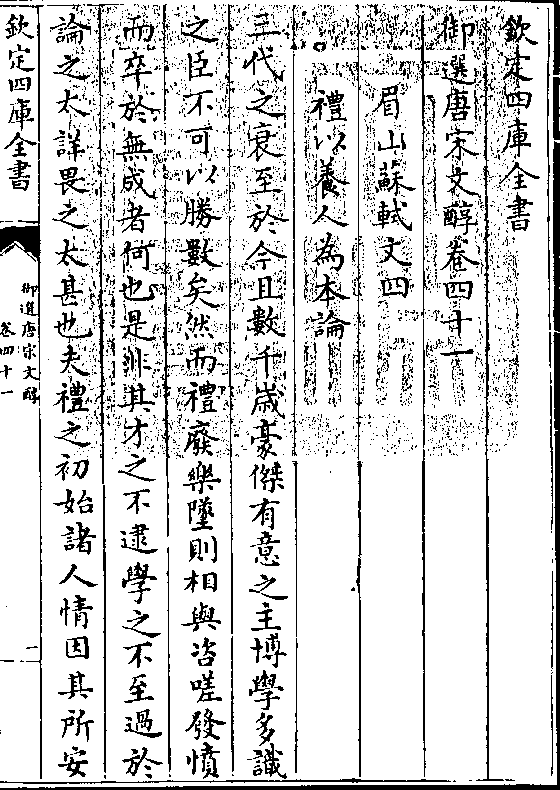 欽定四庫全書
御選唐宋文醇卷四十一
眉山蘇軾文四
禮以養人為本論
三代之衰至於今且數千歲豪傑有意之主博學多識
之臣不可以勝數矣然而禮廢樂墜則相與咨嗟發憤
而卒於無成者何也是非其才之不逮學之不至過於
論之太詳畏之太甚也夫禮之初始諸人情因其所安
欽定四庫全書
御選唐宋文醇
卷四十一
一